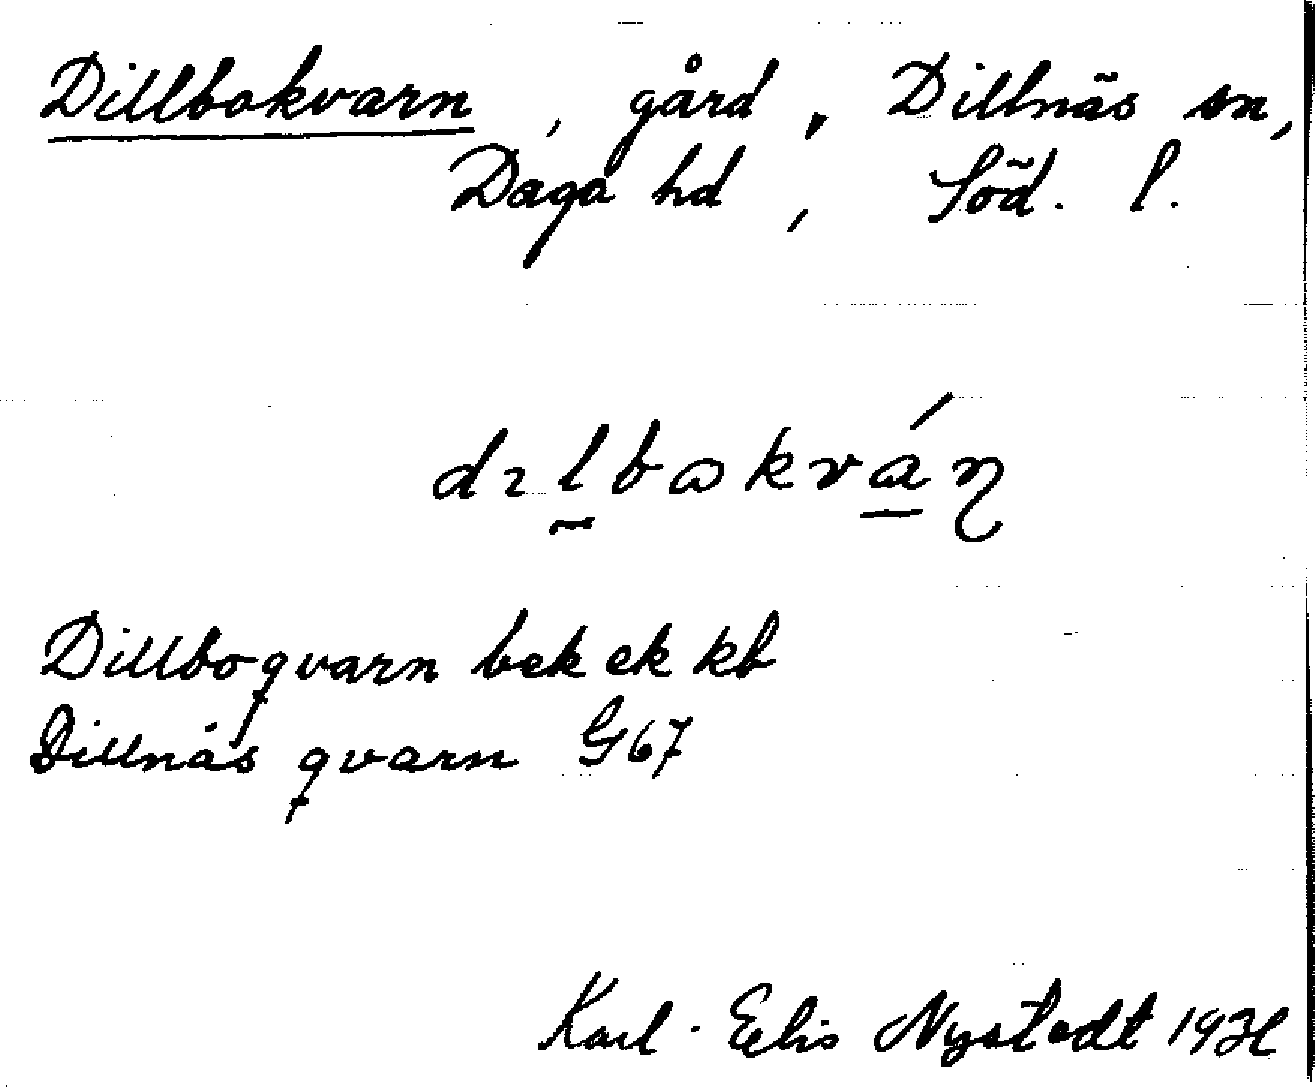 Dillbokvarn, gård, Dillnäs sn,
Daga hd, Söd. l.
dɪl̰bɷkvá̱ɳ
Dillboqvarn bek ek kb
Dillnäs qvarn G67
Karl-Elis Nystedt